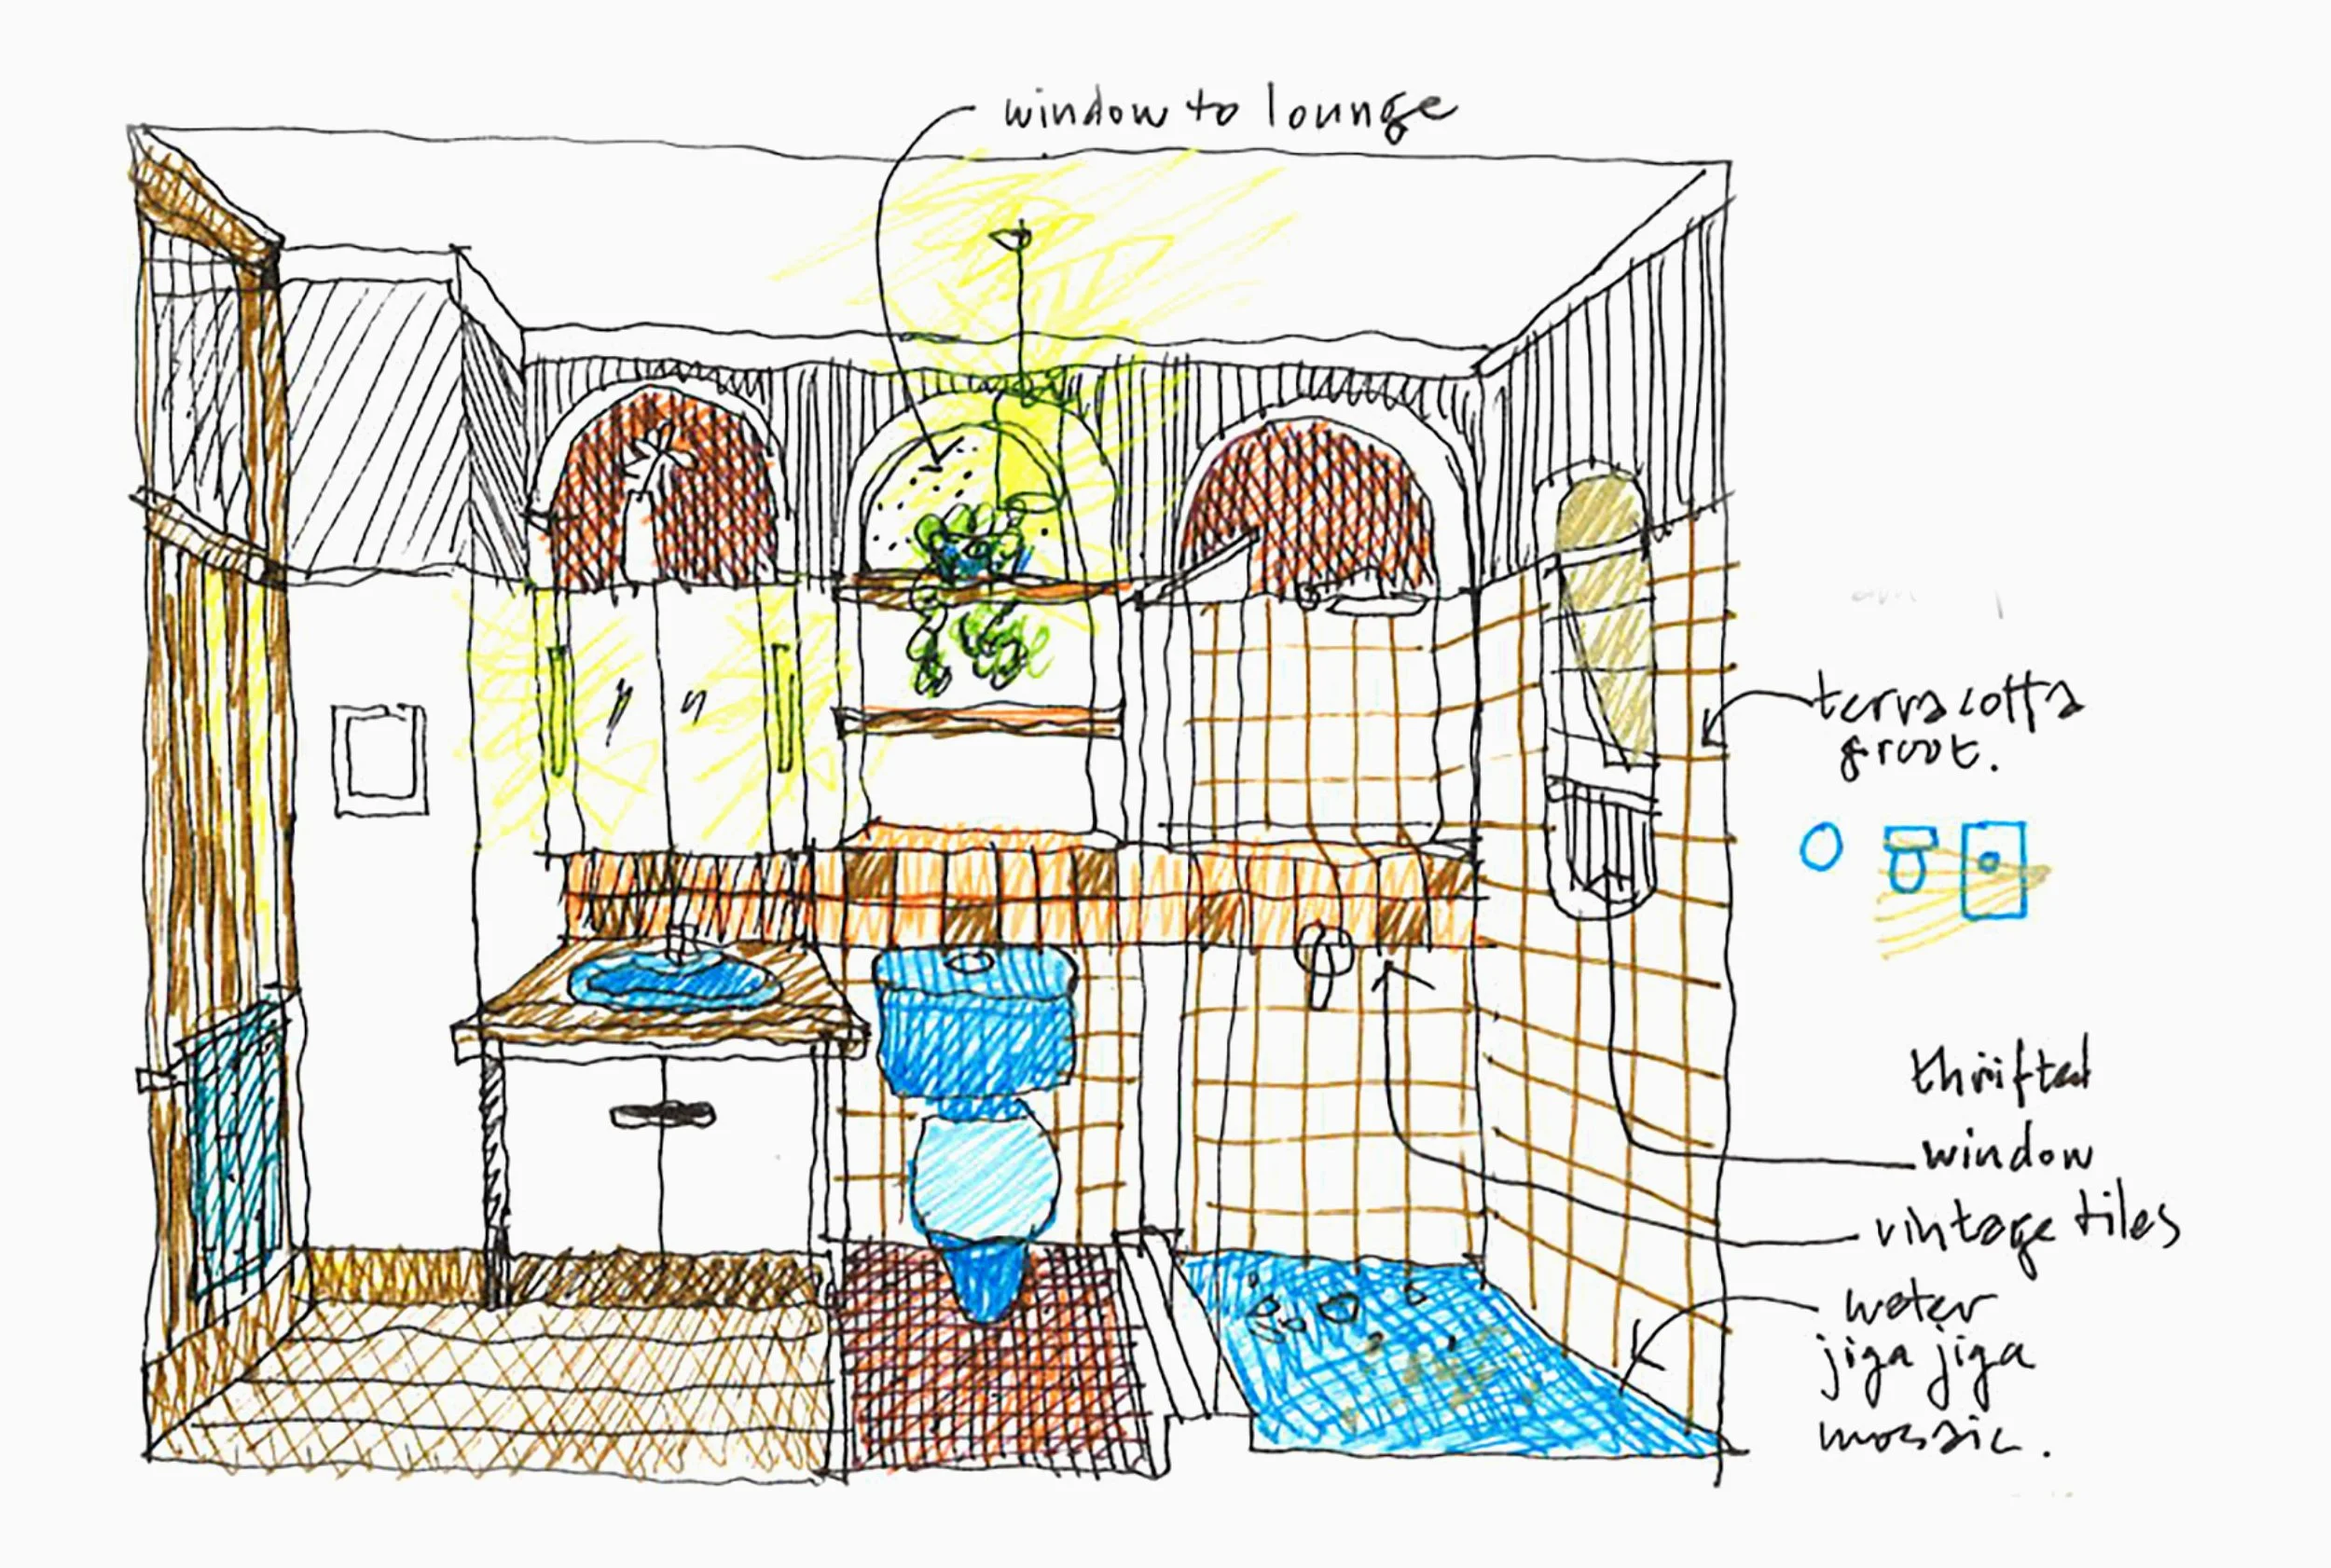 window to lounge
terracotta
grout.
thrifted
window
vintage tiles
water
jiga jiga
mosaic.